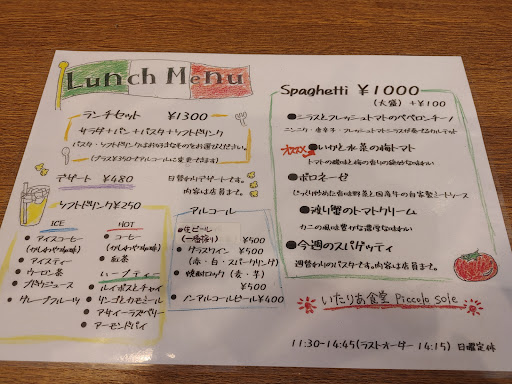 Lunch Menu
ランチセット ¥1300
サラダ+パン+パスタ+ソフトドリンク
パスタ・ソフトドリンクはお好きなものをお選びください。
(プラス¥350でアルコールに変更できます)
デザート ¥480
日替わりデザートです。
内容は店員まで。
ソフトドリンク ¥250
ICE
● アイスコーヒー
(かしわや珈琲)
● アイスティー
● ウーロン茶
● ブドウジュース
● グレープフルーツ
HOT
● コーヒー
(かしわや珈琲)
● 紅茶
ハーブティー
● ルイボスとチャイ
● リンゴとカモミール
● アサイーラズベリー
● アーモンドパイ
アルコール
●生ビール
(一番搾り) ¥500
● グラスワイン ¥500
(赤・白・スパークリング)
● 焼酎ロック(麦・芋)
¥500
● ノンアルコールビール ¥400
Spaghetti ¥1000
(大盛) +¥100
●シラスとフレッシュトマトのペペロンチーノ
ニンニク・唐辛子・フレッシュトマトシラスが奏でるカルテット
オススメ
●いかと水菜の梅トマト
トマトの酸味と梅の香りの絶妙な味わい
● ボロネーゼ
じっくり炒めた香味野菜と国産牛の自家製ミートソース
● 渡り蟹のトマトクリーム
カニの風味が豊かな濃厚な味わい
● 今週のスパゲッティ
週替わりのパスタです。内容は店員まで。
いたりあ食堂 Piccolo Sole
11:30-14:45(ラストオーダー 14:15) 日曜定休